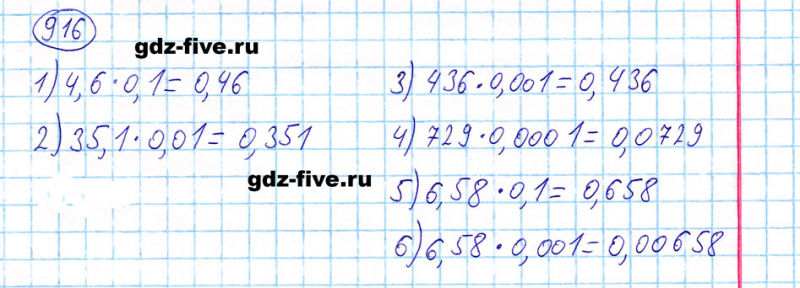 916
gdz-five.ru
1) 4,6·0,1=0,46
2) 35,1·0,01=0,351
gdz-five.ru
3) 436·0,001=0,436
4) 729·0,0001=0,0729
5) 6,58·0,1=0,658
6) 6,58·0,001=0,00658